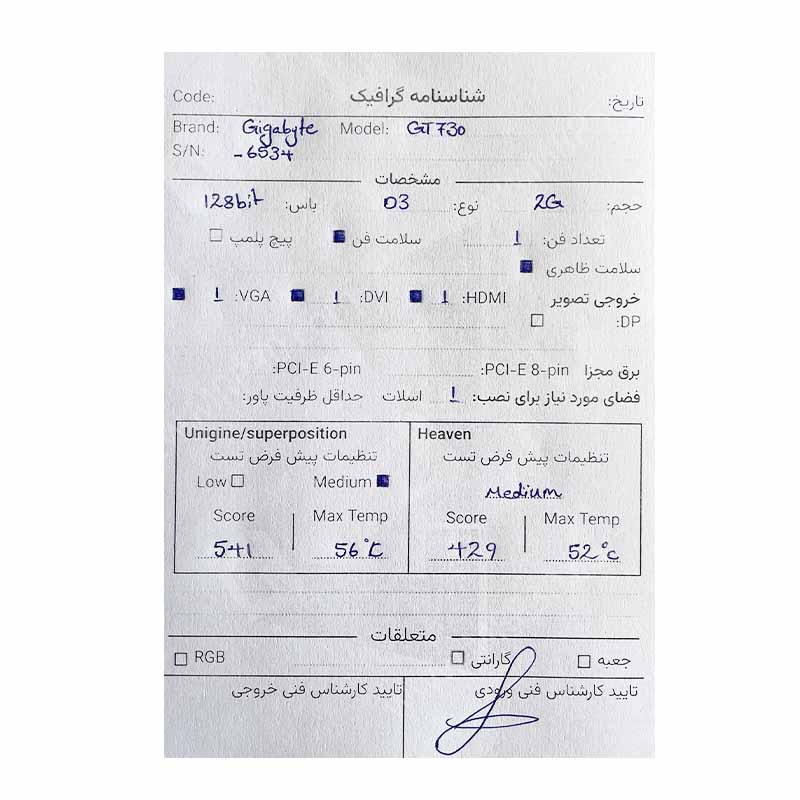 Code: شناسنامه گرافیک تاریخ:
Brand: Gigabyte Model: GT 730
S/N: -6534
مشخصات
حجم: 2G نوع: D3 باس: 128bit
تعداد فن: 1 سلامت فن پیچ پلمپ
سلامت ظاهری
خروجی تصویر HDMI: 1 DVI: 1 VGA: 1
DP:
برق مجزا PCI-E 8-pin: PCI-E 6-pin:
فضای مورد نیاز برای نصب: 1 اسلات حداقل ظرفیت پاور:
Unigine/superposition Heaven
تنظیمات پیش فرض تست تنظیمات پیش فرض تست
Low Medium Medium
Score Max Temp Score Max Temp
541 56°C 429 52°c
متعلقات
جعبه گارانتی RGB
تایید کارشناس فنی ورودی تایید کارشناس فنی خروجی